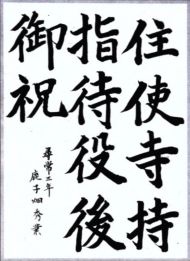 住使寺持
指待役後
御祝
尋常二年
鹿子畑秀業